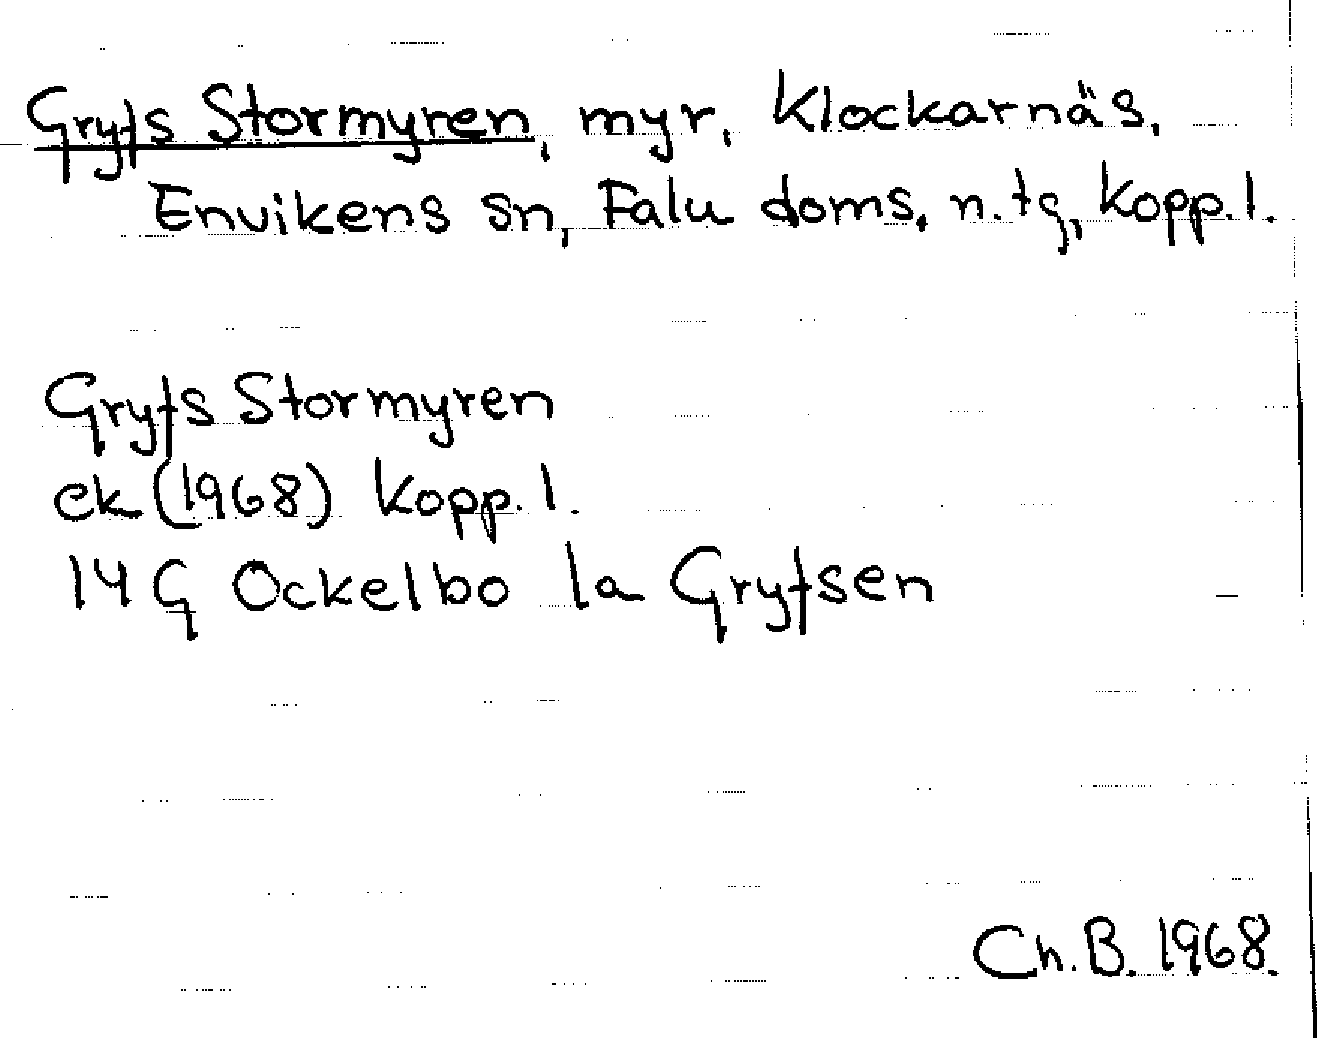 Gryts Stormyren, myr, Klockarnäs,
Envikens sn, Falu doms. n. tg, Kopp. l.
Gryts Stormyren
ek (1968) Kopp. l.
14 G Ockelbo 1a Grytsen
Ch. B. 1968.